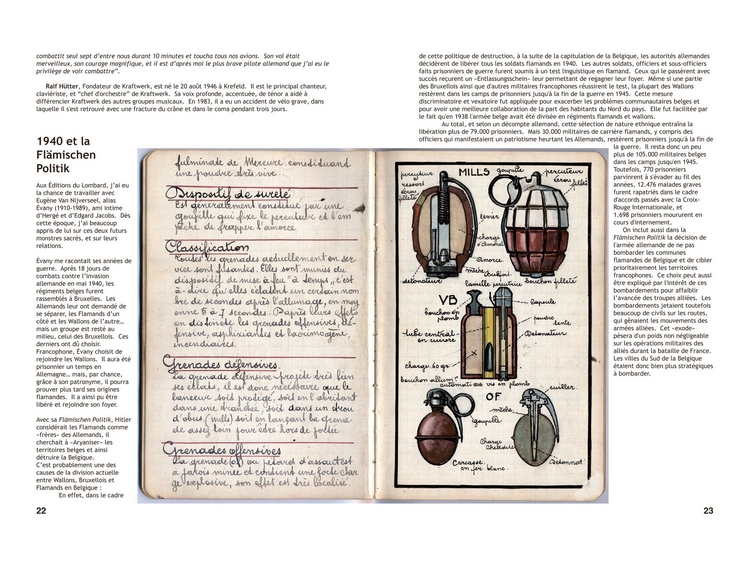 combattit seul sept d'entre nous durant 10 minutes et toucha tous nos avions. Son vol était
merveilleux, son courage magnifique, et il est d'après moi le plus brave pilote allemand que j'ai eu le
privilège de voir combattre".
Ralf Hütter, Fondateur de Kraftwerk, est né le 20 août 1946 à Krefeld. Il est le principal chanteur,
claviériste, et "chef d'orchestre" de Kraftwerk. Sa voix profonde, accentuée, de ténor a aidé à
différencier Kraftwerk des autres groupes musicaux. En 1983, il a eu un accident de vélo grave, dans
laquelle il s'est retrouvé avec une fracture du crâne et dans le coma pendant trois jours.
1940 et la
Flämischen
Politik
Aux Éditions du Lombard, j'ai eu
la chance de travailler avec
Eugène Van Nijverseel, alias
Évany (1910-1989), ami intime
d'Hergé et d'Edgard Jacobs. Dès
cette époque, j'ai beaucoup
appris de lui sur ces deux futurs
monstres sacrés, et sur leurs
relations.
Évany me racontait ses années de
guerre. Après 18 jours de
combats contre l'invasion
allemande en mai 1940, les
régiments belges furent
rassemblés à Bruxelles. Les
Allemands leur ont demandé de
se séparer, les Flamands d'un
côté et les Wallons de l'autre…
mais un groupe est resté au
milieu, celui des Bruxellois. Ces
derniers ont dû choisir.
Francophone, Évany choisit de
rejoindre les Wallons. Il aura été
prisonnier un temps en
Allemagne… mais, par chance,
grâce à son patronyme, il pourra
prouver plus tard ses origines
flamandes. Il a ainsi pu être
libéré et rejoindre son foyer.
Avec sa Flämischen Politik, Hitler
considérait les Flamands comme
«frères» des Allemands, il
cherchait à «Aryaniser» les
territoires belges et ainsi
détruire la Belgique.
C'est probablement une des
causes de la division actuelle
entre Wallons, Bruxellois et
Flamands en Belgique :
En effet, dans le cadre
22
fulminate de Mercure constituant
une poudre très vive.
Dispositif de sureté
Est généralement constitué par une
goupille qui fixe le percuteur et l'em
pêche de frapper l'amorce
Classification
Toutes les grenades actuellement en ser-
vice sont fusantes. Elles sont munies du
dispositif de mise à feu "à Temps", c'est
à-dire qu'elles éclatent un certain nom
bre de secondes après l'allumage, en moy
enne 5 à 7 secondes. D'après leurs effets
on distingue les grenades offensives, dé-
fensives, asphyxiantes et lacrimogène
incendiaires.
Grenades défensives.
La grenade défensive projette très bien
ses éclats, il est donc nécessaire que le
lanceur soit protégé, soit en l'abritant
dans une tranchée, soit dans un trou
d'obus (mills) soit en lançant la grena-
de assez loin pour être hors de portée
Grenades offensives
La grenade (of) ou pétard d'assaut est
à parois mince et contient une forte char
ge explosive, son effet est très localisé
MILLS
goupille
percuteur
écrou
fileté
percuteur
ressort
levier
charge
d'Ammonal
Amorce
mèche
détonateur
bouchon fileté
VB
bouchon en
plomb
Capsule
poudre
lente
tube central
en cuivre
Détonateur
charge 60 gr
bouchon allum
en plomb
OF
cuiller
mèche
goupille
Charge
Cheddite
Carcasse
en fer blanc
Détonnat
de cette politique de destruction, à la suite de la capitulation de la Belgique, les autorités allemandes
décidèrent de libérer tous les soldats flamands en 1940. Les autres soldats, officiers et sous-officiers
faits prisonniers de guerre furent soumis à un test linguistique en flamand. Ceux qui le passèrent avec
succès reçurent un «Entlassungsschein» leur permettant de regagner leur foyer. Même si une partie
des Bruxellois ainsi que d'autres militaires francophones réussirent le test, la plupart des Wallons
restèrent dans les camps de prisonniers jusqu'à la fin de la guerre en 1945. Cette mesure
discriminatoire et vexatoire fut appliquée pour exacerber les problèmes communautaires belges et
pour avoir une meilleure collaboration de la part des habitants du Nord du pays. Elle fut facilitée par
le fait qu'en 1938 l'armée belge avait été divisée en régiments flamands et wallons.
Au total, et selon un décompte allemand, cette sélection de nature ethnique entraîna la
libération plus de 79.000 prisonniers. Mais 30.000 militaires de carrière flamands, y compris des
officiers qui manifestaient un patriotisme heurtant les Allemands, restèrent prisonniers jusqu'à la fin de
la guerre. Il resta donc un peu
plus de 105.000 militaires belges
dans les camps jusqu'en 1945.
Toutefois, 770 prisonniers
parvinrent à s'évader au fil des
années, 12.476 malades graves
furent rapatriés dans le cadre
d'accords passés avec la Croix-
Rouge Internationale, et
1.698 prisonniers moururent en
cours d'internement.
On inclut aussi dans la
Flämischen Politik la décision de
l'armée allemande de ne pas
bombarder les communes
flamandes de Belgique et de cibler
prioritairement les territoires
francophones. Ce choix peut aussi
être expliqué par l'intérêt de ces
bombardements pour affaiblir
l'avancée des troupes alliées. Les
bombardements jetaient toutefois
beaucoup de civils sur les routes,
qui gênaient les mouvements des
armées alliées. Cet «exode»
pèsera d'un poids non négligeable
sur les opérations militaires des
alliés durant la bataille de France.
Les villes du Sud de la Belgique
étaient donc bien plus stratégiques
à bombarder.
23